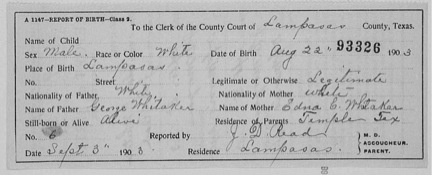 A 1147—REPORT OF BIRTH—Class 2.
To the Clerk of the County Court of Lampasas County, Texas.
Name of Child
Sex Male. Race or Color White Date of Birth Aug 22" 93326 1903
Place of Birth Lampasas.
No. Street. Legitimate or Otherwise Legitimate
Nationality of Father, White Nationality of Mother White
Name of Father George Whitaker Name of Mother Edna E. Whitaker
Still-born or Alive Alive Residence of Parents Temple Tex
No. 6 Reported by J. D. Read M. D.
ACCOUCHEUR.
Date Sept. 3" 1903 Residence Lampasas. PARENT.